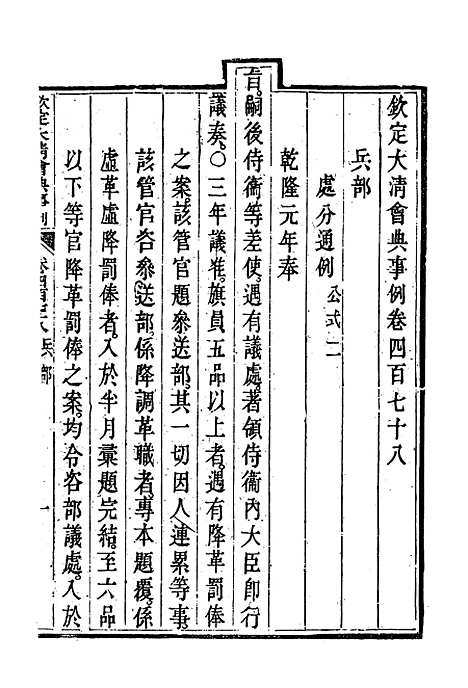 欽定大清會典事例卷四百七十八
兵部
處分通例 公式二
乾隆元年奉
旨。嗣後侍衞等差使。遇有議處。著領侍衞內大臣卽行
議奏。〇三年議準。旗員五品以上者。遇有降革罰俸
之案。該管官題參送部。其一切因人連累等事。
該管官咨參送部。係降調革職者。專本題覆。係
虛革虛降罰俸者。入於半月彙題完結。至六品
以下等官降革罰俸之案。均令咨部議處。入於
欽定大清會典事例 卷四百七十八 兵部 一